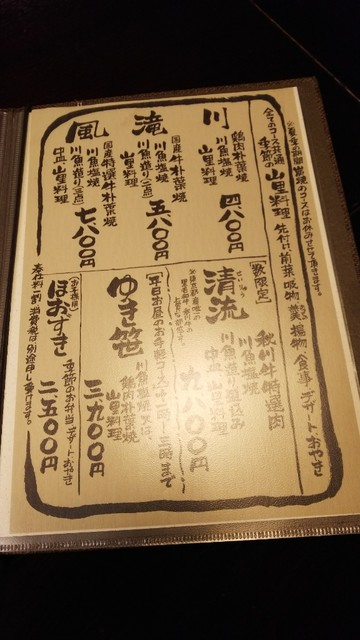 全てのコース共通
季節の山里料理 先付け 前菜 吸物 揚物 食事 デザート おやき
川
鶏肉朴葉焼
川魚塩焼
山里料理
四八〇〇円
滝
国産牛朴葉焼
川魚塩焼
川魚造り(二点)
山里料理
五八〇〇円
風
国産特選牛朴葉焼
川魚塩焼
川魚造り(三点)
中皿 山里料理
七八〇〇円
【数限定】
清流
せいりゅう
秋川牛特選肉
川魚塩焼
川魚造り盛込み
中皿 山里料理
〇〇円
【平日お昼のお手軽コース】十一時〜三時まで
ゆき笹
川魚塩焼 又は、
鶏肉朴葉焼
山里料理
三、九〇〇円
(お子様用)
ほおずき
季節のお弁当、デザート、おやき
二五〇〇円
奉仕料一割 消費税は別途申し受けます。